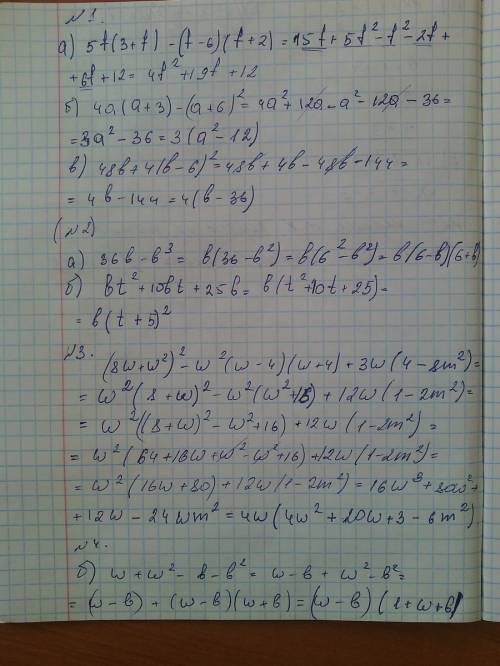 №1.
а) 5t(3+t) - (t-6)(t+2) = 15t + 5t² - t² - 2t +
+ 6t + 12 = 4t² + 19t + 12
б) 4a(a+3) - (a+6)² = 4a² + 12a - a² - 12a - 36 =
= 3a² - 36 = 3(a² - 12)
в) 48в + 4(в-6)² = 48в + 4в - 48в - 144 =
= 4в - 144 = 4(в - 36)
(№2)
а) 36в - в³ = в(36 - в²) = в(6² - в²) = в(6-в)(6+в)
б) вt² + 10вt + 25в = в(t² + 10t + 25) =
= в(t + 5)²
№3.
(8w+w²)² - w²(w-4)(w+4) + 3w(4-8m²) =
= w²(8+w)² - w²(w²+16) + 12w(1-2m²) =
= w²((8+w)² - w² + 16) + 12w(1-2m²) =
= w²(64 + 16w + w² - w² + 16) + 12w(1-2m²) =
= w²(16w + 80) + 12w(1-2m²) = 16w³ + 80w² +
+ 12w - 24wm² = 4w(4w² + 20w + 3 - 6m²)
№4.
б) w + w² - в - в² = w - в + w² - в² =
= (w-в) + (w-в)(w+в) = (w-в)(1+w+в)